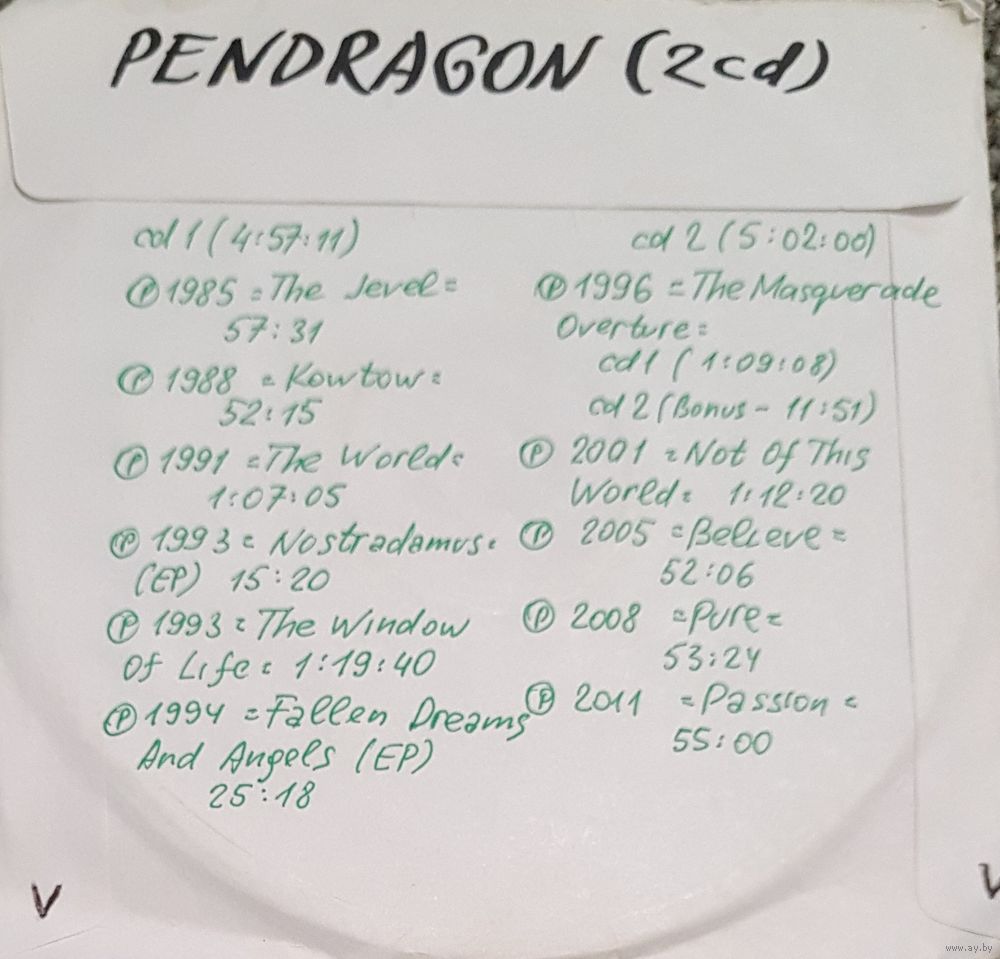 PENDRAGON (2cd)
cd 1 (4:57:11)
Ⓟ 1985 = The Jevel =
57:31
Ⓟ 1988 = Kowtow =
52:15
Ⓟ 1991 = The World =
1:07:05
Ⓟ 1993 = Nostradamus =
(EP) 15:20
Ⓟ 1993 = The Window
Of Life = 1:19:40
Ⓟ 1994 = Fallen Dreams
And Angels (EP)
25:18
cd 2 (5:02:00)
Ⓟ 1996 = The Masquerade
Overture =
cd 1 (1:09:08)
cd 2 (Bonus - 11:51)
Ⓟ 2001 = Not Of This
World = 1:12:20
Ⓟ 2005 = Believe =
52:06
Ⓟ 2008 = Pure =
53:24
Ⓟ 2011 = Passion =
55:00
V
V
www.ay.by